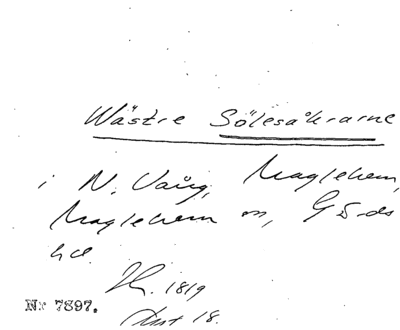 Wästre Sölesåkrarne
i N. Vång, Maglehem,
Maglehem sn, Gärds
hd.
1819
Nr 7897.
18.